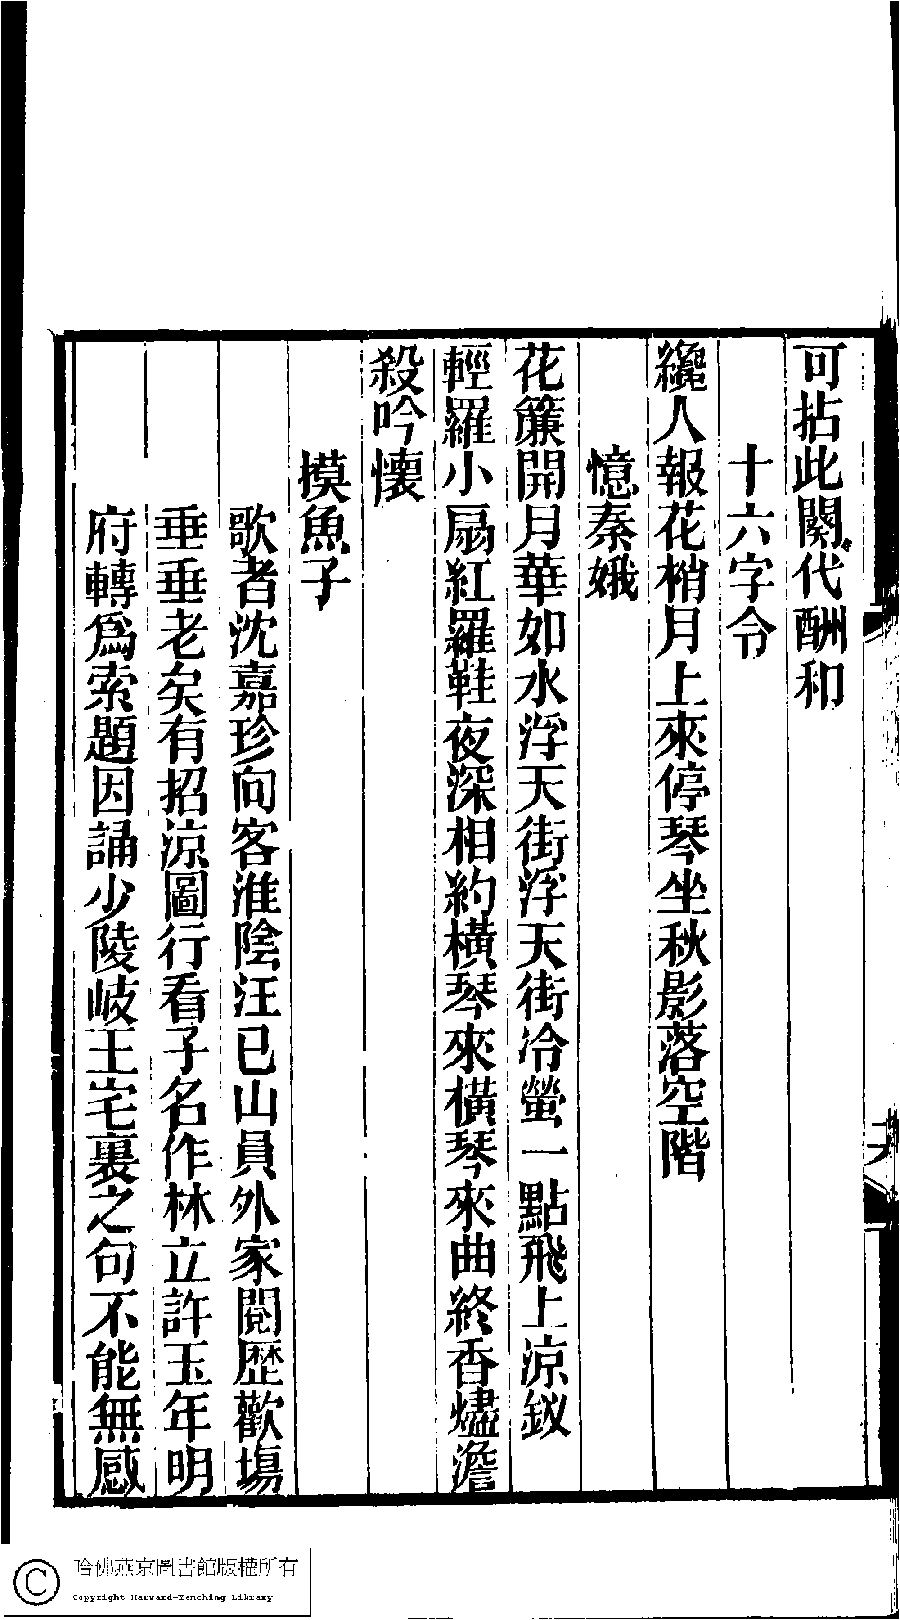 可拈此闋代酬和
十六字令
纔人報花梢月上來停琴坐秋影落空階
憶秦娥
花簾開月華如水浮天街浮天街冷螢一點飛上涼釵
輕羅小扇紅羅鞋夜深相約橫琴來橫琴來曲終香燼澹
殺吟懷
摸魚子
歌者沈嘉珍向客淮陰汪已山員外家閱歷歡塲
垂垂老矣有招涼圖行看子名作林立許玉年明
府轉爲索題因誦少陵岐王宅裏之句不能無感
哈佛燕京圖書館版權所有
Copyright Harvard-Yenching Library